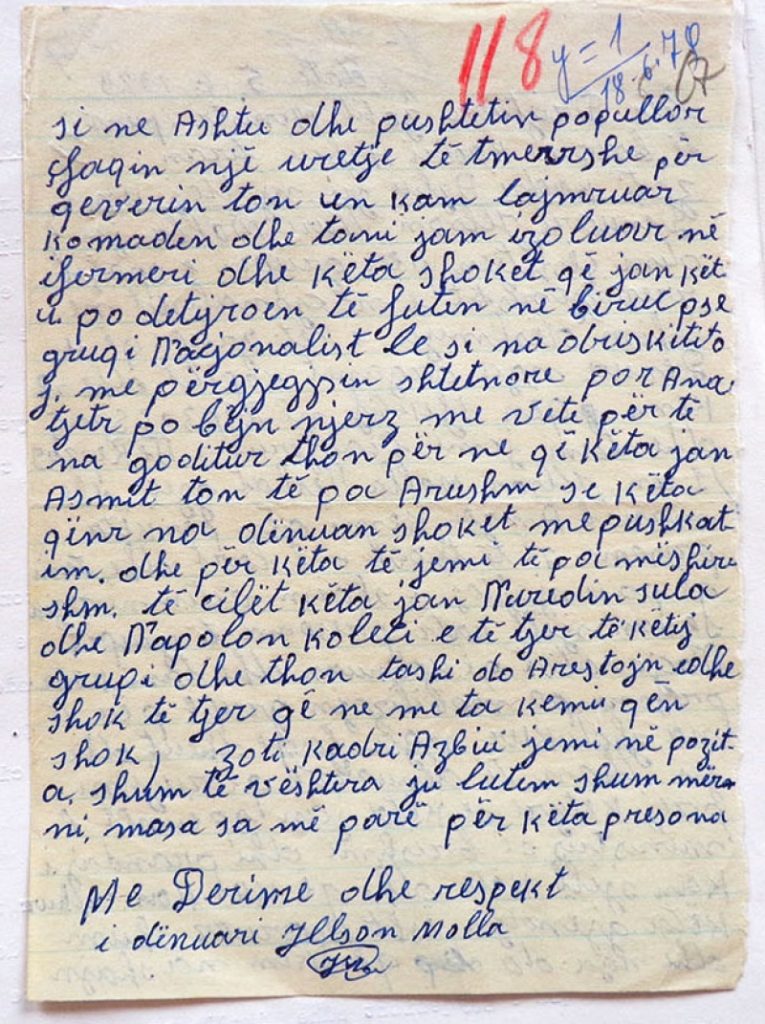 118 y=1
18.6.78 07
si ne Ashtu dhe pushtetin popullor
çfaqin një uretje të tmerrshe për
qeverin ton un kam lajmruar
Komaden dhe tani jam izoluar në
ifermeri dhe këta shoket që jan kët
u. po detyroen të futen në biruc pse
grupi Nacjonalist le si na
j. me përgjegjsin shtetnore por Ana
tjetr po bëjn njerz me vete për të
na goditur thon për ne që këta jan
Asmit ton të pa Arushm se këta
qënr na dënuan shoket me pushkat
im. dhe për këta të jemi të pa mëshire
shm. të cilët këta jan Nuredin sula
dhe Napolon Koleci e të tjer të këtij
grupi dhe thon tashi do Arestojn edhe
shok të tjer që ne me ta kemi qën
shok, zoti Kadri Azbiu jemi në pozit
a. shum të vështira ju lutem shum mër
ni. masa sa më parë për këta presona
Me Derime dhe respekt
i dënuari Jllson Molla